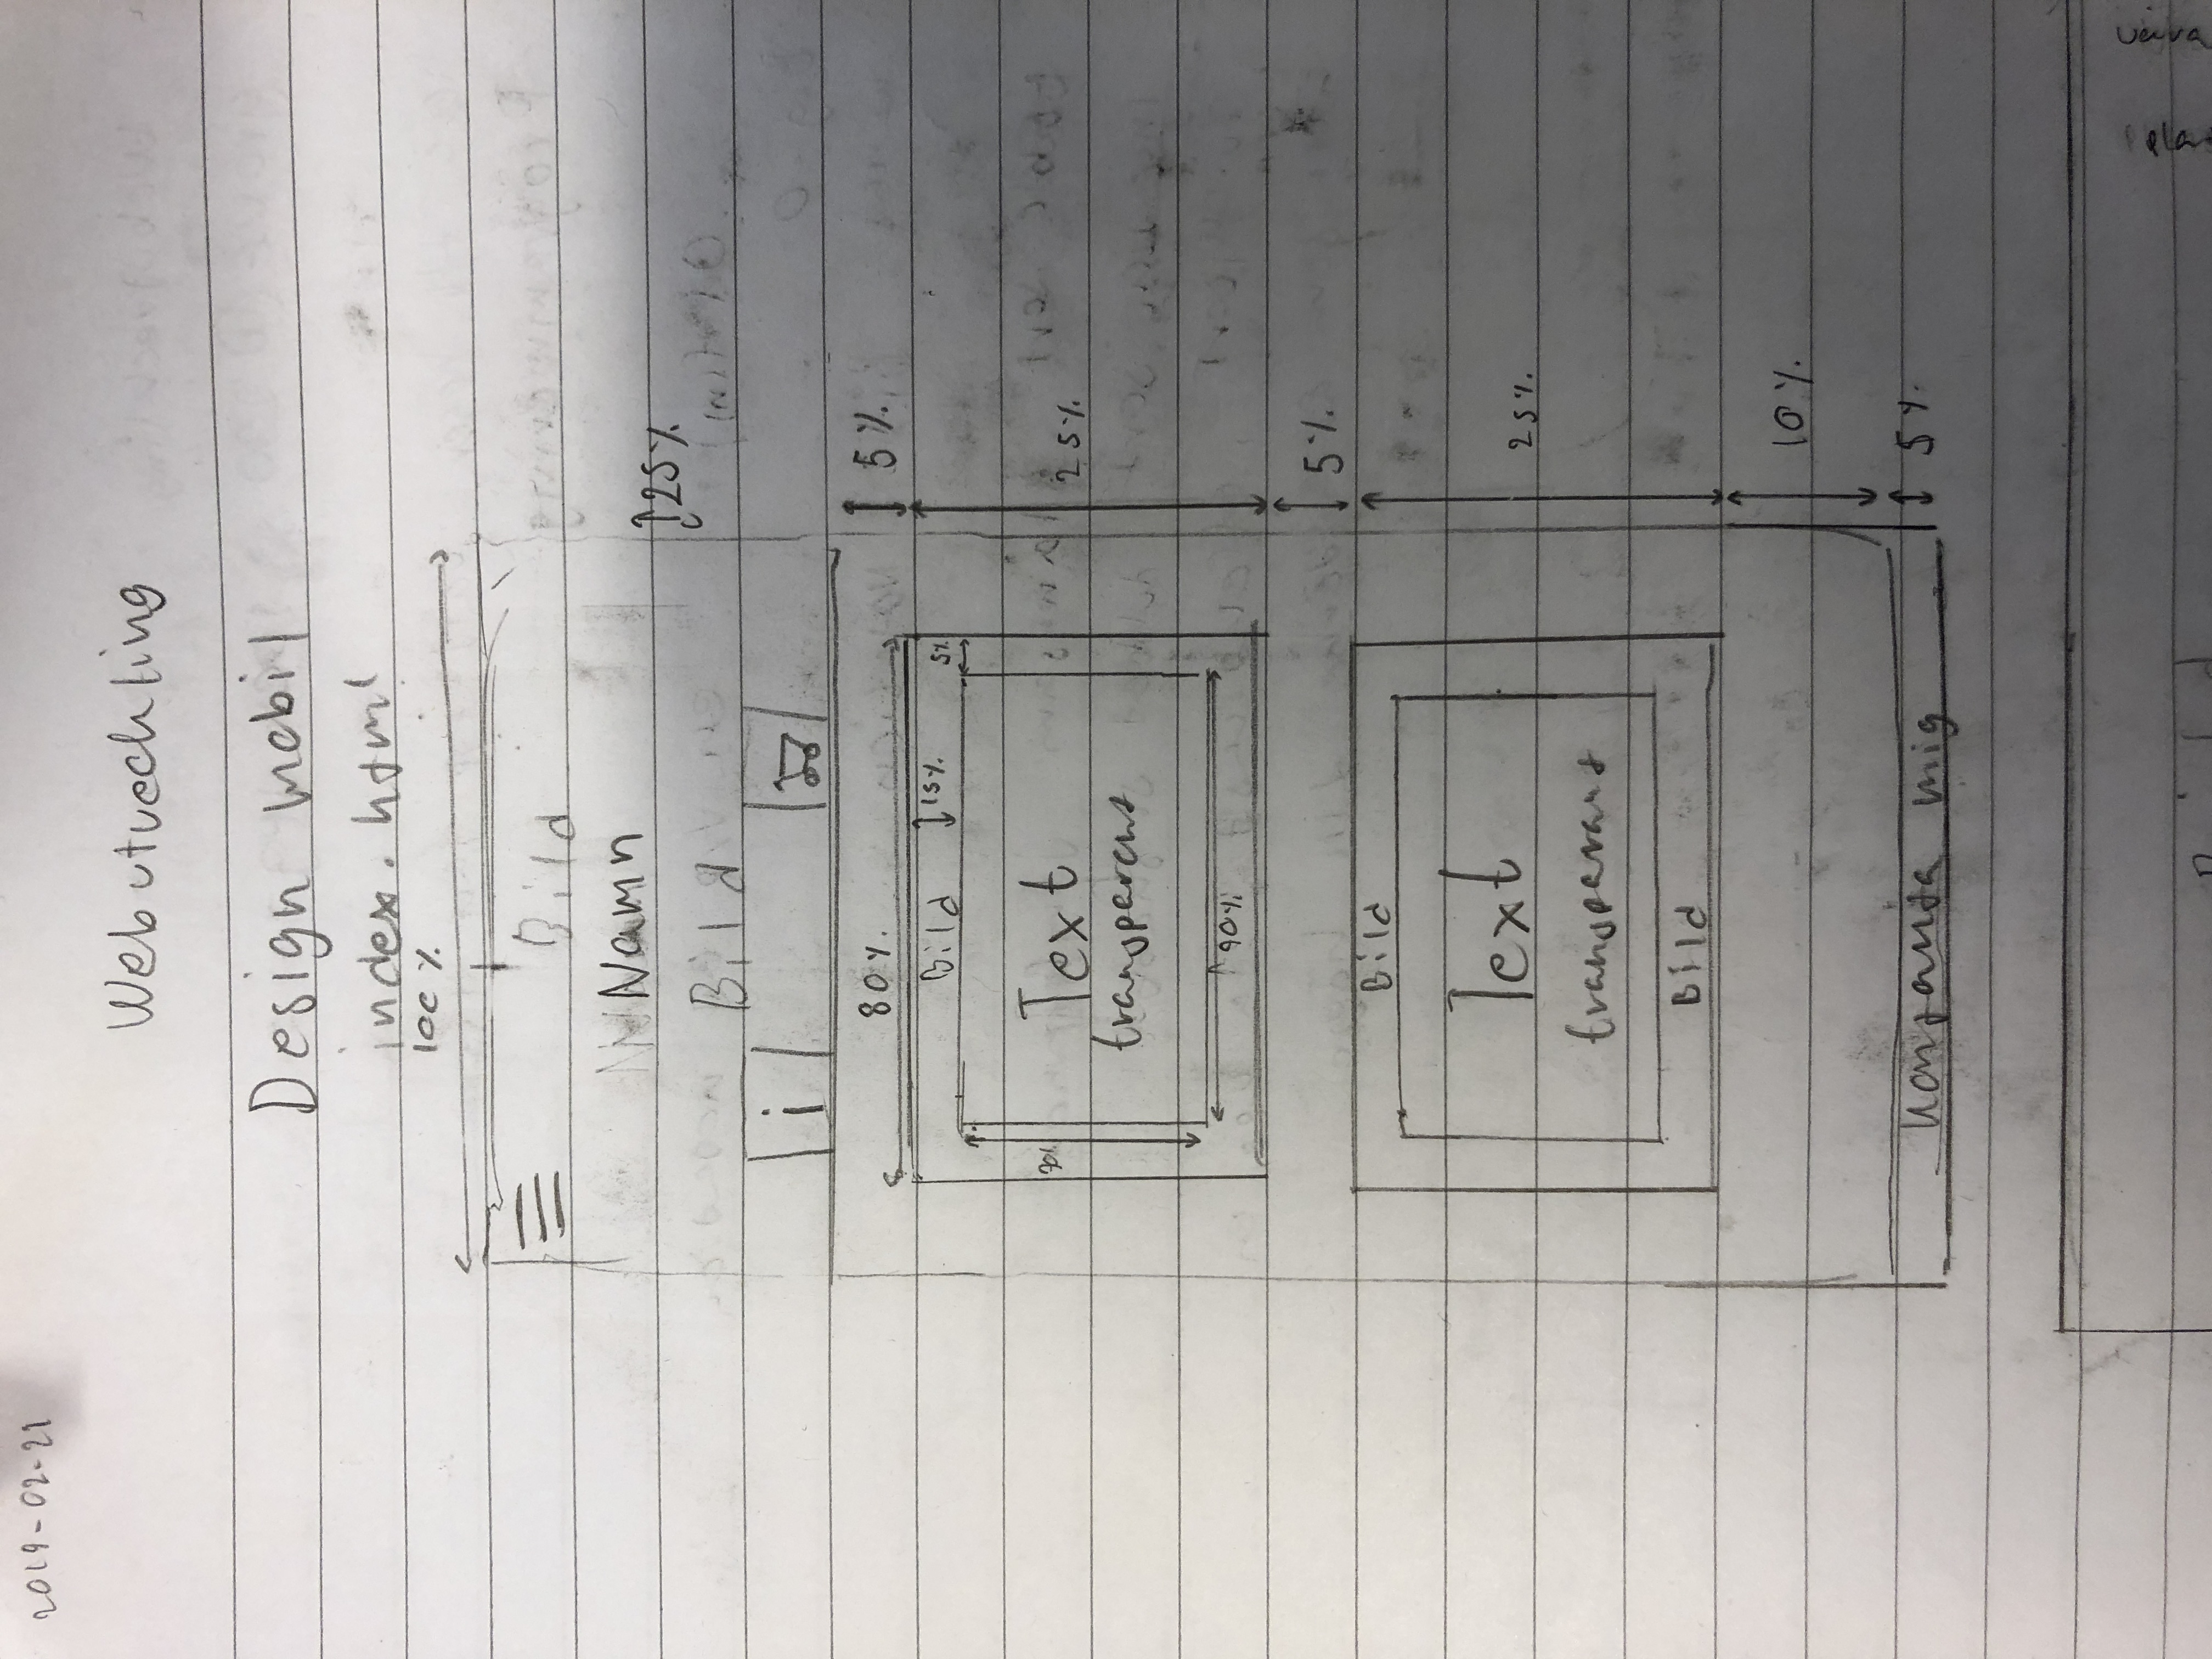 2019-02-21
Webutveckling
Design mobil
index.html
100%
Bild
Namn
25%
Bild
i
5%
80%
Bild 15% 5%
70% Text 25%
transparent
90%
5%
Bild
Text
25%
transparant
Bild
10%
Kontakta mig 5%
Bild